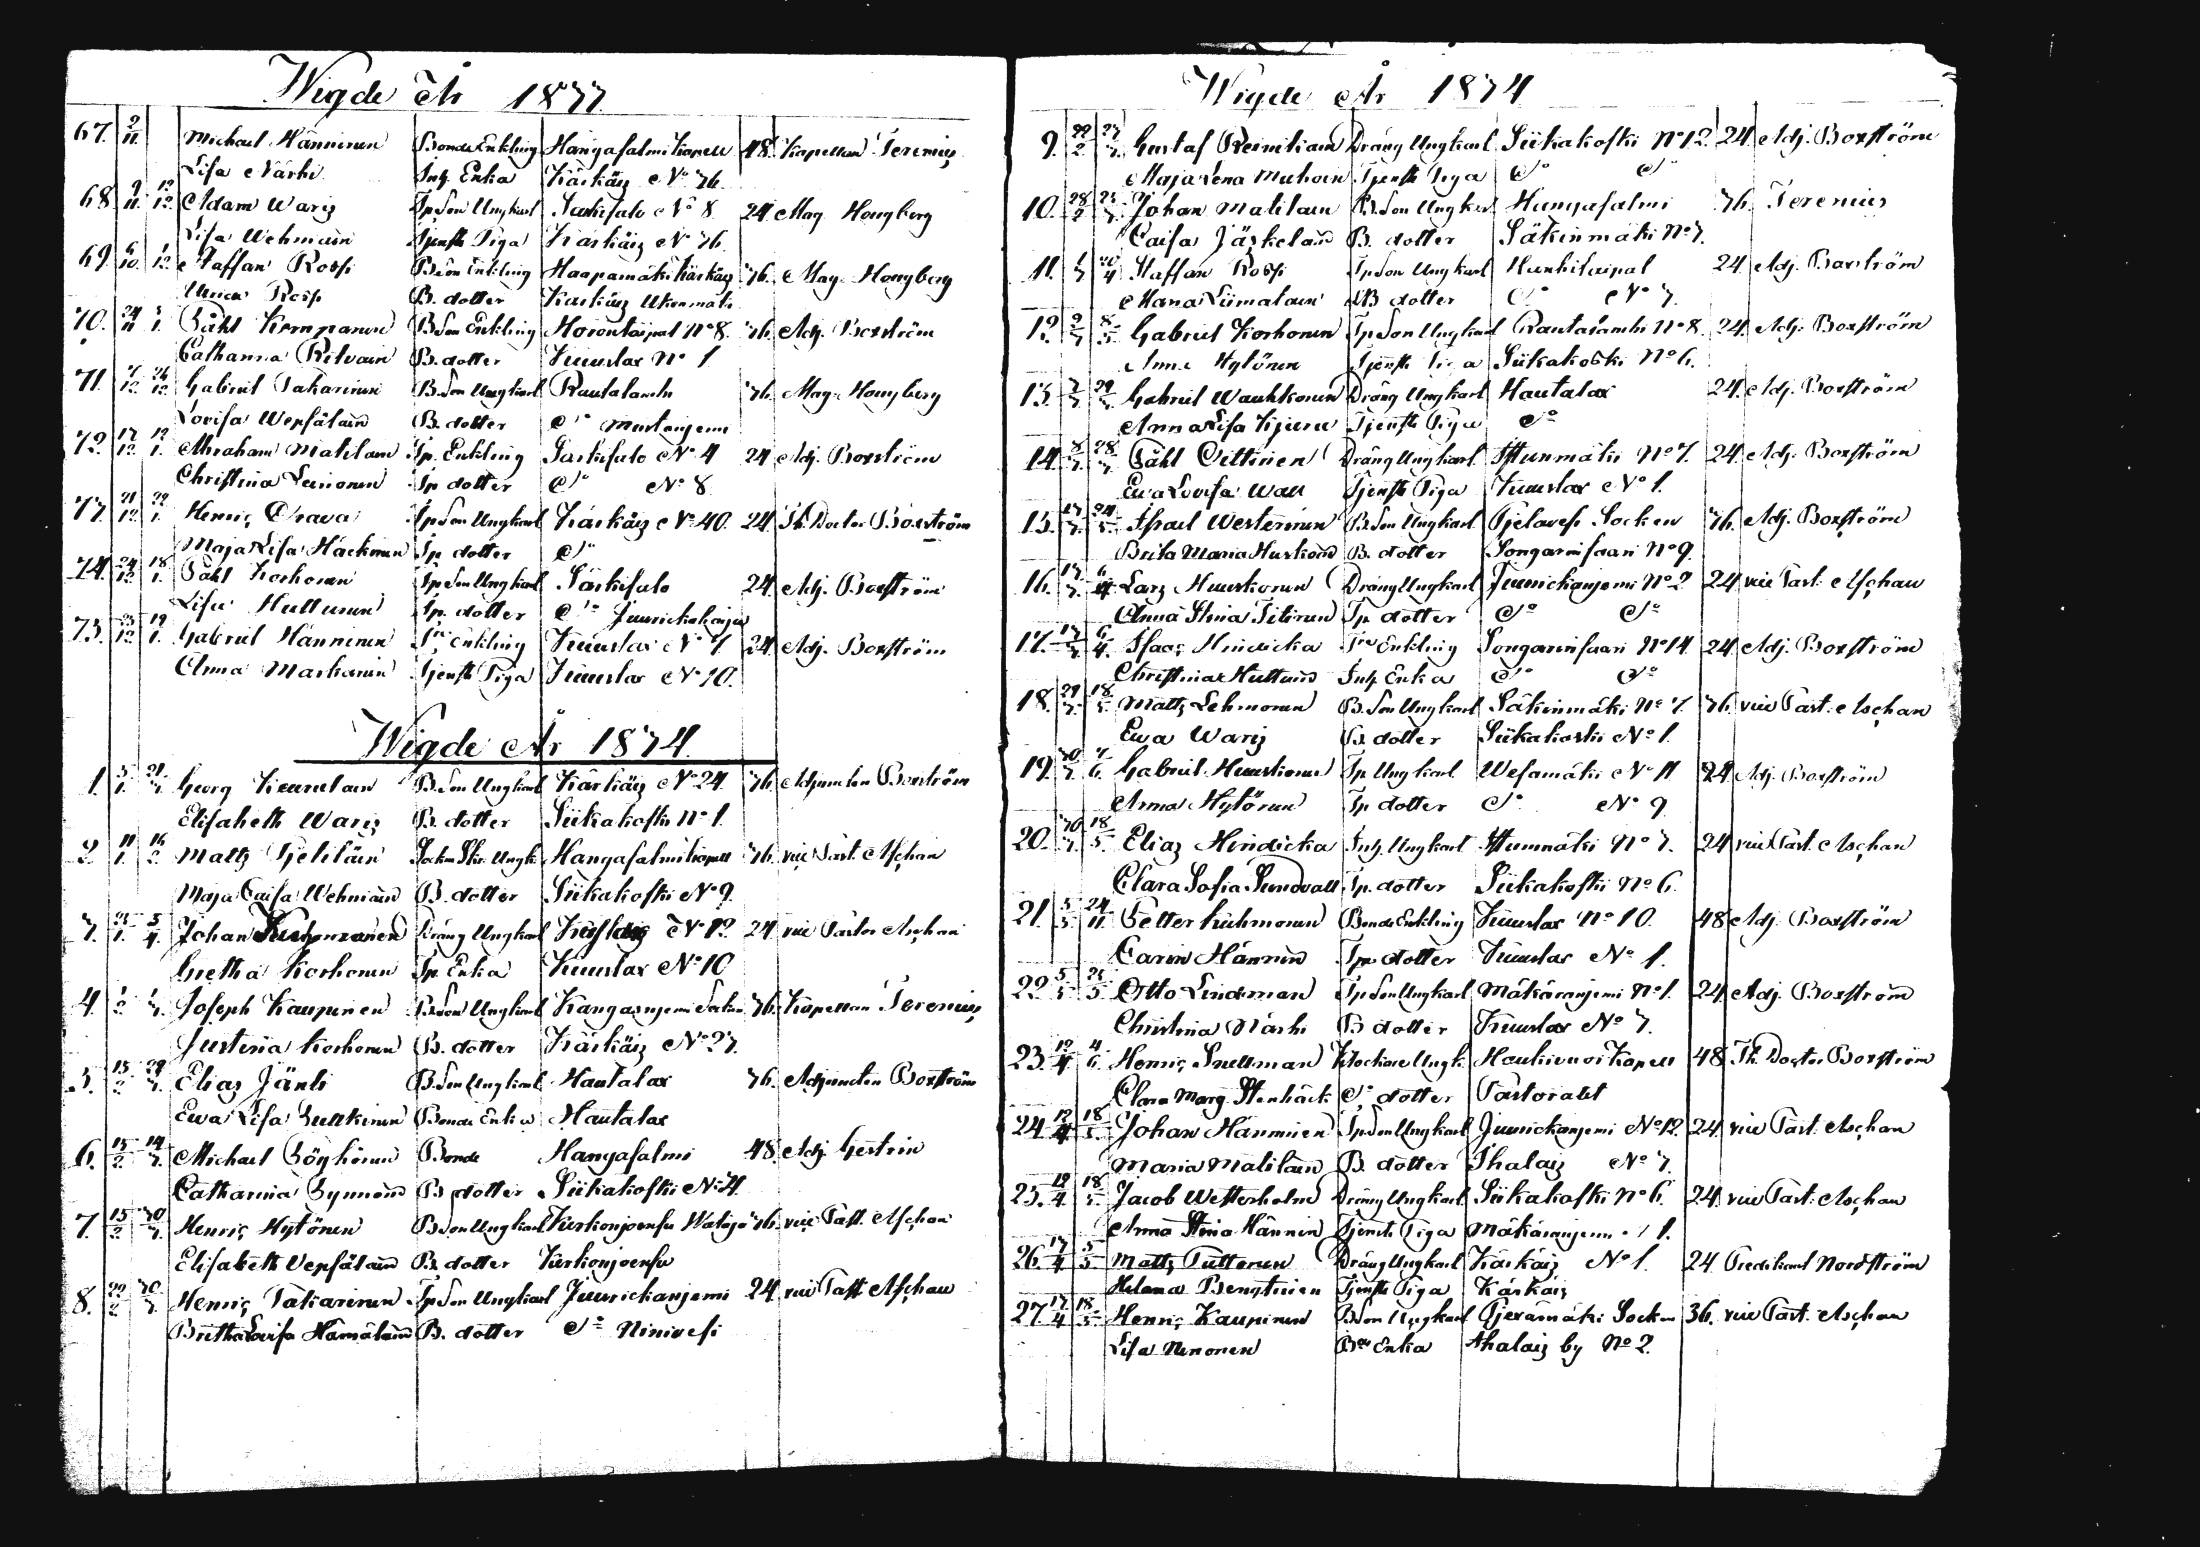 Wigde År 1833.
67. 2/11. Michael Hänninen Bonde Enkling Hangasalmi Kapell 48. Kapellan Terenius
Lisa Närhi Inh. Enka Kärkäis No 36.
68. 9/11. 12/12. Adam Waris Tp Son Ungkarl Leskisalo No 8. 24 Mag. Hougberg
Lisa Wehmain Tjenste Piga Kärkäis No 36.
69. 6/10. 1/12. Staffan Rossi B. Son Enkling Haapamäki Kärkäis 36. Mag. Hougberg
Ulrica Rossi B. dotter Kärkäis
70. 24/11 Påhl Kemppainen B Son Enkling No 8. 36. Adj. Boxström
Catharina Ritvain B. dotter Kuuslax No 1
71. 7/12. 26/12. Gabriel Pakarinen B. Son Ungkarl Rautalambi 36. Mag. Hougberg
Lovisa Wepsäläin B. dotter Do
72. 17/12. 12/1. Abraham Matilain Tp. Enkling No 4 24 Adj. Boxström
Christina Leinonen Tp dotter Do No 8
73. 21/12. 22/1. Henric Orava Tp Son Ungkarl Kärkäis No 40. 24. Th. Doctor Boxström
Maja Lisa Häckinen Tp dotter Do
74. 24/12. 18/1. Påhl Korhonen Tp Son Ungkarl 24. Adj. Boxström
Lisa Huttunen Tp. dotter Do
75. 25/12. 19/1. Gabriel Hänninen Enkling Kuuslax No 7. 24. Adj. Boxström
Anna Markanin Tjenste Piga Kuuslax No 10.
Wigde År 1834.
1. 5/1. 21/3. Georg Kauvelain B Son Ungkarl Kärkäis No 24. 36. Adjuncten Boxström
Elisabeth Waris B. dotter Siikakoski No 1.
2. 11/1. 16/2. Matts Pjetiläin Ungk. Hangasalmi Kapell 36. vice Past. Aschan
Maja Caisa Wehmain B. dotter Siikakoski No 9.
3. 5/4. Johan Dräng Ungkarl No 12 24 vice Pastor Aschan
Gretha Korhonen Tp. Enka Kuuslax No 10
4. 1/2. 1/3. Joseph Kaupinen B. Son Ungkarl Kangasnjemi Socken 36. Kapellan Terenius
Justina Korhonen B. dotter Kärkäis No 23.
5. 15/2. Elias Jänti B. Son Ungkarl Hautalax 36. Adjuncten Boxström
Ewa Lisa Bonde Enka Hautalax
6. 15/2. 14/3. Michael Pöyhönen Bonde Hangasalmi 48. Adj. Gestrin
Catharina Pynnönen B dotter Siikakoski No 4.
7. 15/2. 30/3. Henric Hytönen B Son Ungkarl Kerkonjoensu 36. vice Past. Aschan
Elisabeth Vepsäläin B. dotter Kerkonjoensu
8. 22/2. 30/3. Henric Pakarinen Tp Son Ungkarl Juurickanjemi 24 vice Past Aschan
Bretha Lovisa Hämäläin B. dotter Do Ninivesi
Wigde År 1834
9. 22/2 23/3. Gustaf Reinikain Dräng Ungkarl Siikakoski No 12. 24. Adj. Boxström
Maja Lena Muhoin Tjenste Piga Do Do
10. 28/2 23/3. Johan Matilain B. Son Ungkarl Hangasalmi 36. Terenius
Caisa Jäskeläin B. dotter Säkinmäki No 3.
11. 1/3 20/4 Staffan Rossi Tp Son Ungkarl 24 Adj. Boxström
Maria Liimatain B dotter Do No 3.
12. 2/3 8/5 Gabriel Korhonen Tp Son Ungkarl Rautalambi No 8. 24. Adj. Boxström
Anna Hytönen Tjenste Piga Siikakoski No 6.
13. Gabriel Wauhkonen Dräng Ungkarl Hautalax 24. Adj. Boxström
Anna Lisa Kjiven Tjenste Piga Do
14. 8/3 28/3 Påhl Oittinen Dräng Ungkarl No 7. 24. Adj. Boxström
Ewa Lovisa Wall Tjenste Piga Kuuslax No 1.
15. 13/3. 24/5. Israel Westerinen B. Son Ungkarl Pjelaves Socken 36. Adj. Boxström
Brita Maria Huskoin B. dotter Songarinsaari No 9.
16. 17/3. 6/4 Lars Huuskonen Dräng Ungkarl Juurickanjemi No 2 24 vice Past. Aschan
Anna Stina Titinen Tp. dotter Do Do
17. 17/3 6/4. Isaac Hindicka Enkling Songarinsaari No 14 24 Adj. Boxström
Christina Huttuin Inh Enka Do Do
18. 29/3. 18/5 Matts Lehmonen B. Son Ungkarl Säkinmäki No 7. 36. vice Past. Aschan
Ewa Waris B. dotter Siikakoski No 1.
19. 30/3 Gabriel Huuskonen Tp Ungkarl Wesamäki No 11 24 Adj. Boxström
Anna Hytönen Tp dotter Do No 9
20. 30/3 18/5. Elias Hindicka Inh. Ungkarl No 3. 24 vice Past. Aschan
Clara Sofia Sundvall Tp. dotter Siikakoski No 6.
21. 5/5 24/11. Petter Kuhmonen Bonde Enkling Kuuslax No 10. 48 Adj. Boxström
Carin Hännin Tp. dotter Kuuslax No 1.
22. Otto Lindeman Tp Son Ungkarl Mäkäranjemi No 1. 24 Adj. Boxström
Christina Närhi B dotter Kuuslax No 3.
23. 12/4 4/6. Henric Snellman Klockare Ungk. Haukivuori Kapell 48 Th. Doctor Boxström
Clara Marg. Stenbäck dotter Pastoratet
24. 12/4 18/5. Johan Hänninen Tp Son Ungkarl Juurickanjemi No 12. 24. vice Past. Aschan
Maria Matilain B. dotter Ihalais No 3.
25. 12/4 18/5. Jacob Wetterholm Dräng Ungkarl Siikakoski No 6. 24. vice Past. Aschan
Anna Stina Hännin Tjenste Piga Mäkäranjemi 1.
26. 17/4 5/5 Matts Tutturen Dräng Ungkarl Kärkäis No 1. 24 Predikant Nordström
Helena Bengtinen Tjenste Piga Kärkäis
27. 17/4 18/5 Henric Kaupinen B Son Ungkarl Pjexämäki Socken 36. vice Past. Aschan
Lisa Nenonen Enka Ihalais by No 2.